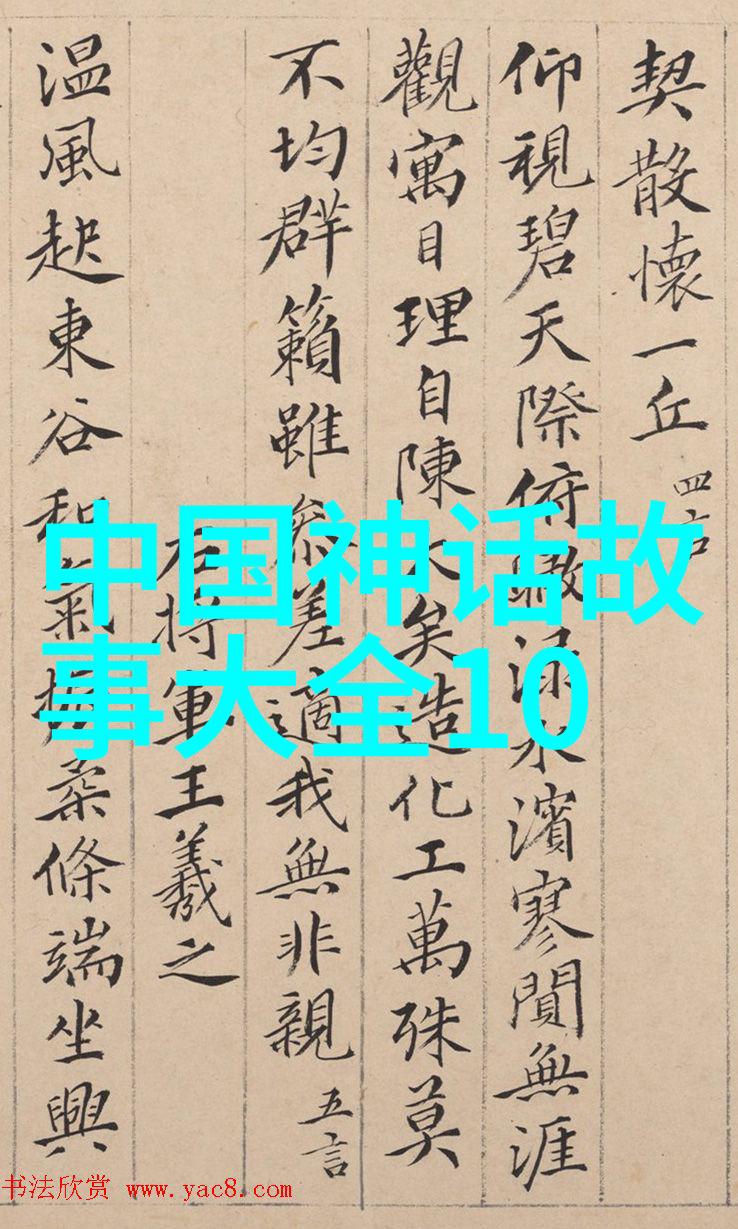 契散懷一丘 四言
仰視碧天際俯瞰淥水濱寥閴無涯
觀寓目理自陳大矣造化工萬殊莫
不均群籟雖參差適我無非親 五言
右將軍王羲之
温風起東谷和氣振柔條端坐興
中国神话故
事大全10
书法欣赏 www.yac8.com